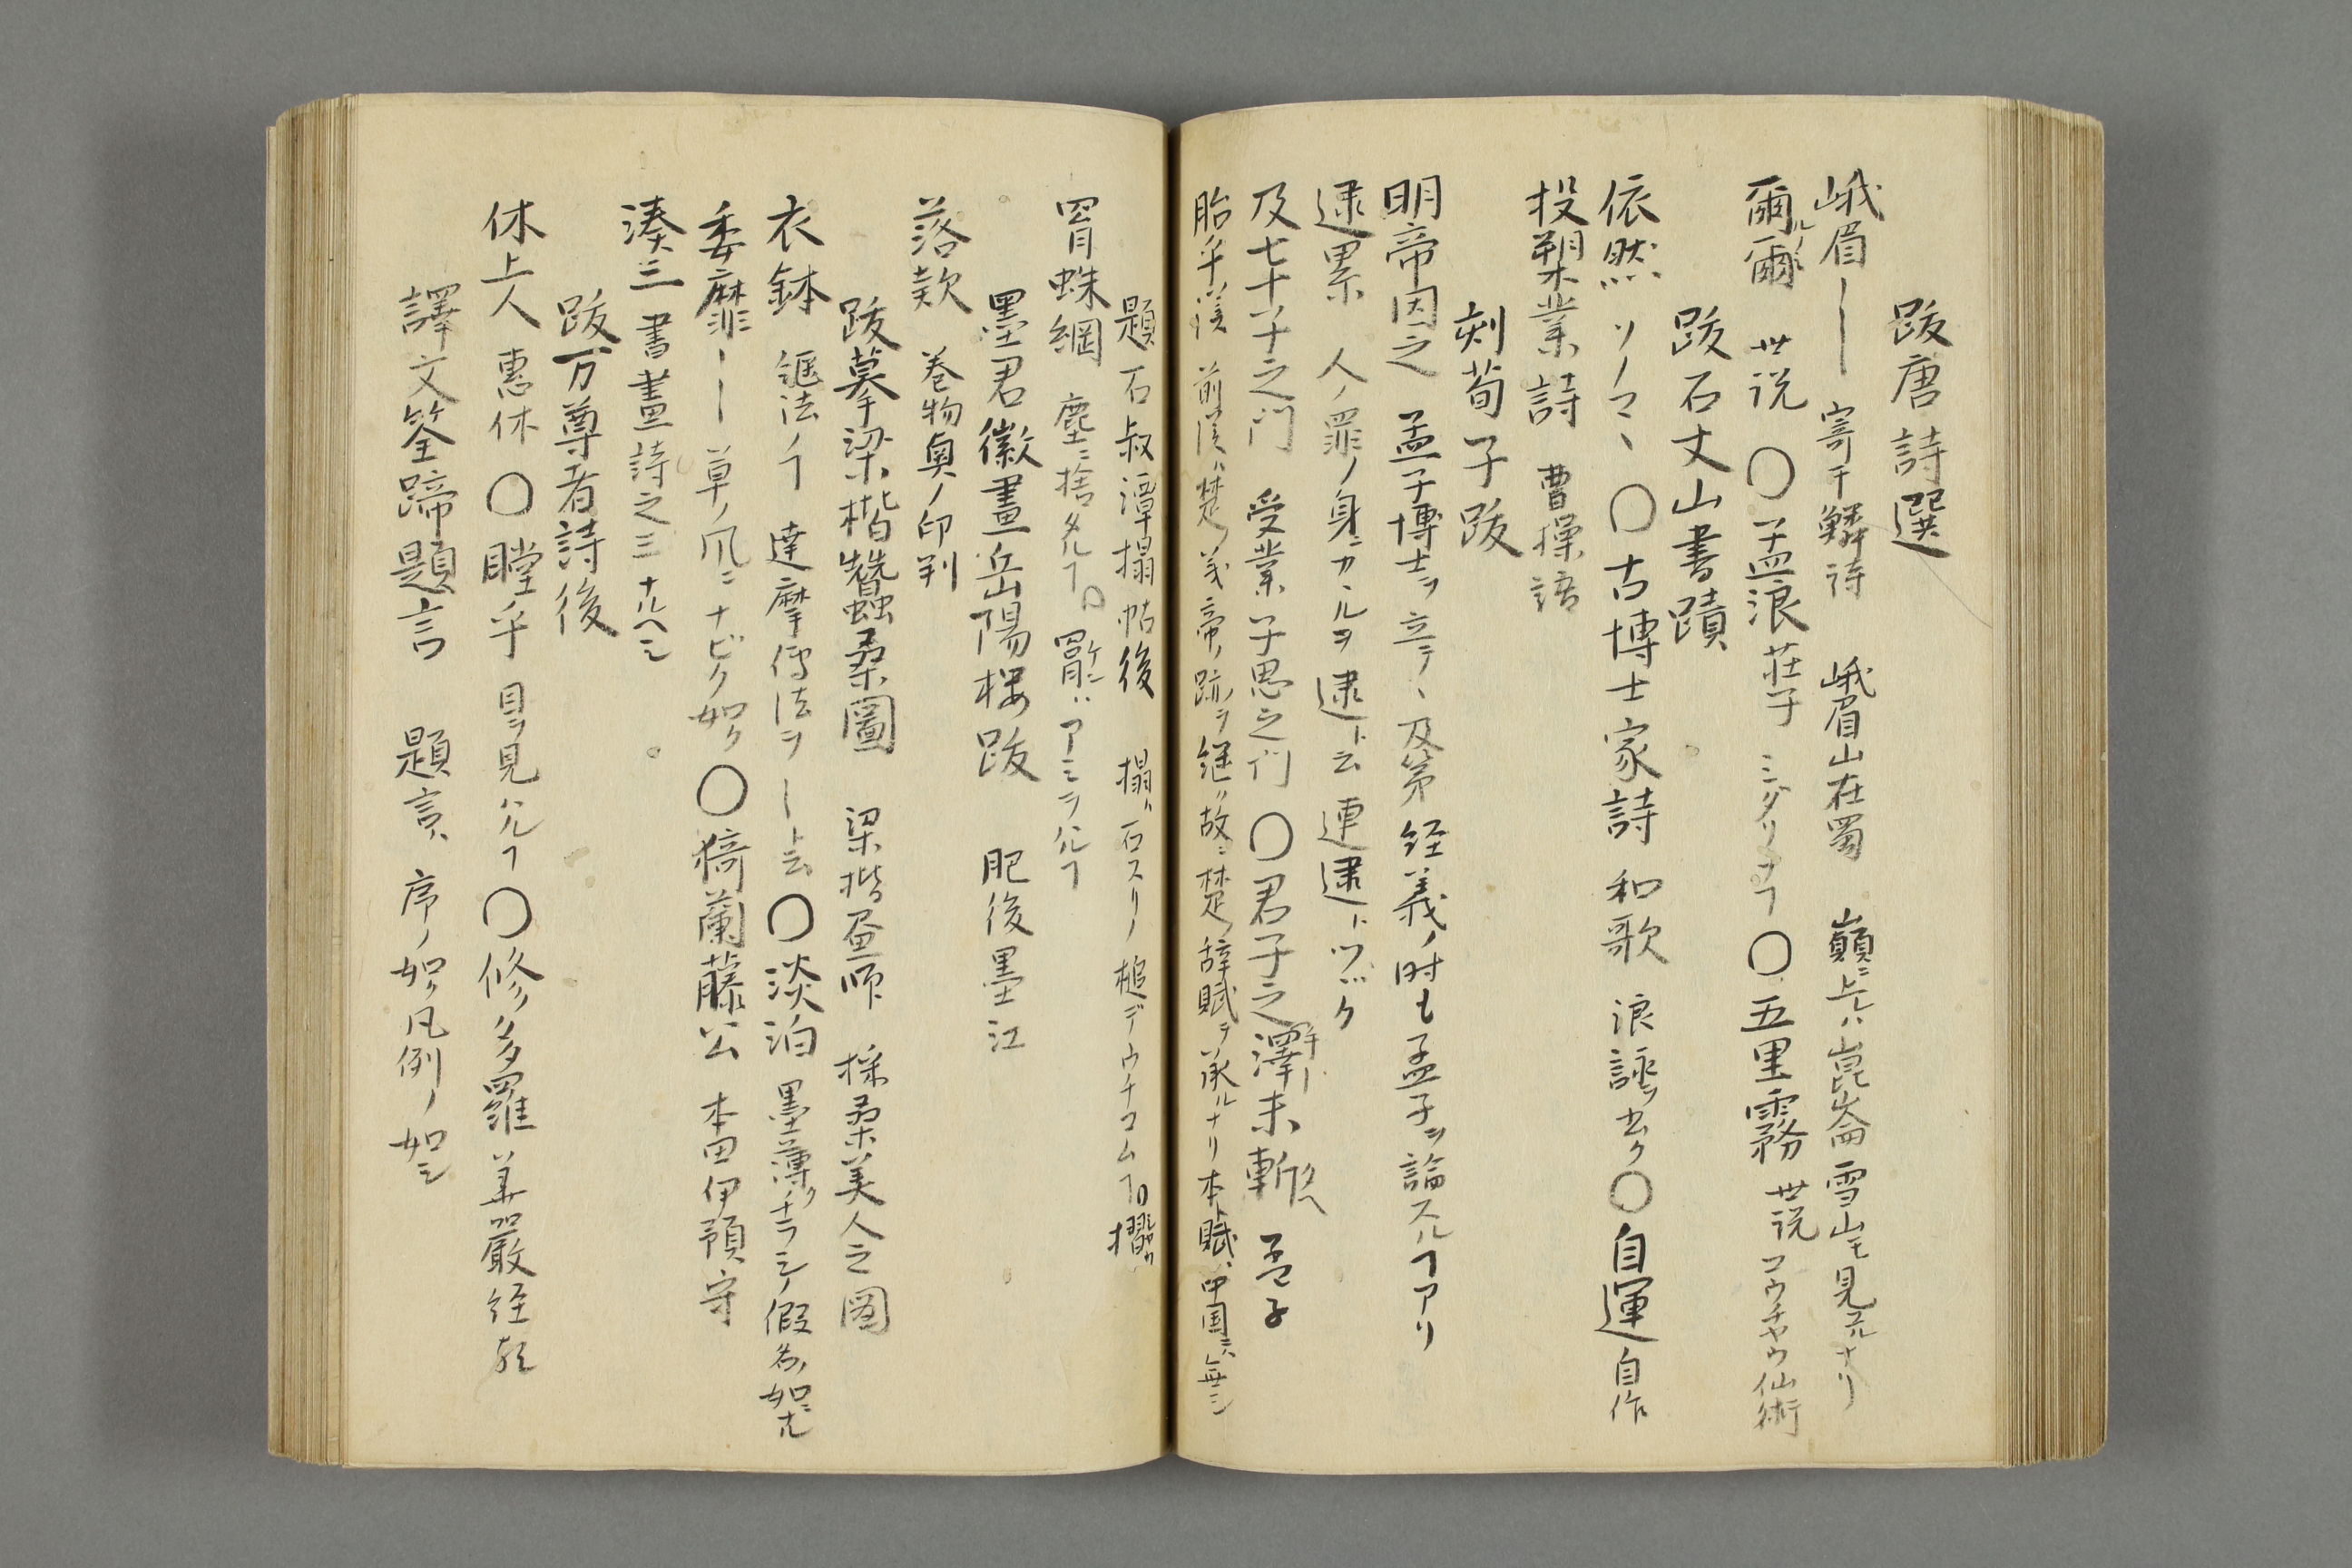 跋唐詩選
峨眉｜｜ 寄于鱗詩 峨眉山在蜀 巔ニ上レハ崑崙雪山モ見ユルナリ
爾爾 世説 〇孟浪 荘子 ミダリナヿ 〇五里霧 世説 コウチヤウ仙術
跋石丈山書蹟
依然 ソノマヽ 〇古博士家詩 和歌 浪詠ヲ 〇自運 自作
投槊業詩 曹操語
刻荀子跋
明帝因之 孟子博士ヲ立テヽ 及第 経義ノ時も孟子ヲ論スルヿアリ
逮累 人ノ罪ノ身ニカヽルヲ逮ト云 連逮トツヾク
及七十子之門 受業子思之門 〇君子之澤未斬 孟子
胎乎漢 前漢ハ楚ノ義帝ノ跡ヲ継ク故ニ楚ノ辞賦ヲ承ルナリ 本ト賦ハ中国ニハ無シ
題石叔潭搨帖後 搨ハ石スリノ槌デウチコムヿ
罥蛛網 塵ニ捨タルヿ 罥ハアミヲハルヿ
墨君徽畫岳陽楼跋 肥後墨江
落款 巻物奥ノ印判
跋摹梁楷蠶桑圖 梁楷画師 採桑美人之図
衣鉢 傳法ノヿ 達摩傳法ヲ｜ト云 〇淡泊 墨薄クチラシノ假名ノ如ニ
委靡｜｜ 草ノ風ニナビク如ク 〇猗蘭藤公 本田伊預守
湊三 書畫詩之三ナルヘシ
跋万尊者詩後
休上人 惠休 〇瞠乎 目ヲ見ハルヿ 〇修多羅 華嚴経
譯文筌蹄題言 題言ハ序ノ如ク凡例ノ如シ